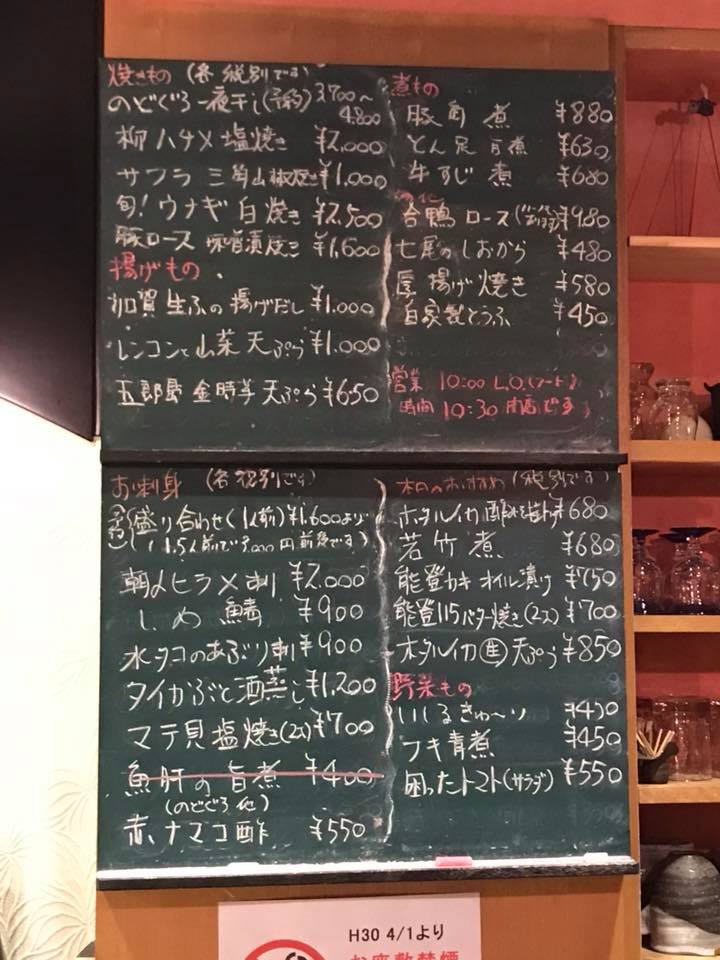 焼きもの (各 税別です)
のどぐろ一夜干し(予約) 3,700〜4,800
柳ハチメ塩焼き ¥2,000
サワラ三角山椒焼き ¥1,000
旬!ウナギ白焼き ¥2,500
豚ロース 味噌漬焼き ¥1,600
揚げもの
加賀生ふの揚げだし ¥1,000
レンコンと山菜天ぷら ¥1,000
五郎島金時芋天ぷら ¥650
煮もの
豚角煮 ¥880
とん足旨煮 ¥630
牛すじ煮 ¥680
その他
合鴨ロース ¥980
七尾のしおから ¥480
厚揚げ焼き ¥580
自家製とうふ ¥450
営業 10:00 L.O.(フード)
時間 10:30 閉店です
お刺身 (各税別です)
盛り合わせ(1人前) ¥1,600より
(1.5人前で3,000円前後です)
朝〆ヒラメ刺 ¥2,000
しめ鯖 ¥900
水タコのあぶり刺 ¥900
タイかぶと酒蒸し ¥1,200
マテ貝塩焼き(2コ) ¥700
魚肝の旨煮 ¥400
(のどぐろ他)
赤ナマコ酢 ¥550
本日のおすすめ (税別です)
ホタルイカ酢みそ ¥680
若竹煮 ¥680
能登カキオイル漬け ¥750
能登115バター焼き(2コ) ¥700
ホタルイカ(生)天ぷら ¥850
野菜もの
いしるきゅーり ¥450
フキ青煮 ¥450
困ったトマト(サラダ) ¥550
H30 4/1より
お座敷禁煙